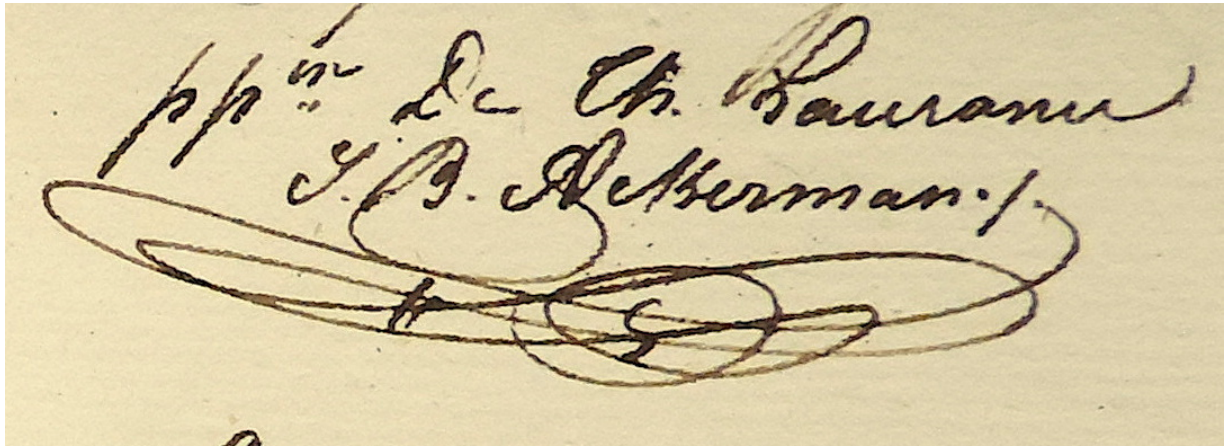 ppⁿ De Ch. Laurans
J. B. Ackerman./.